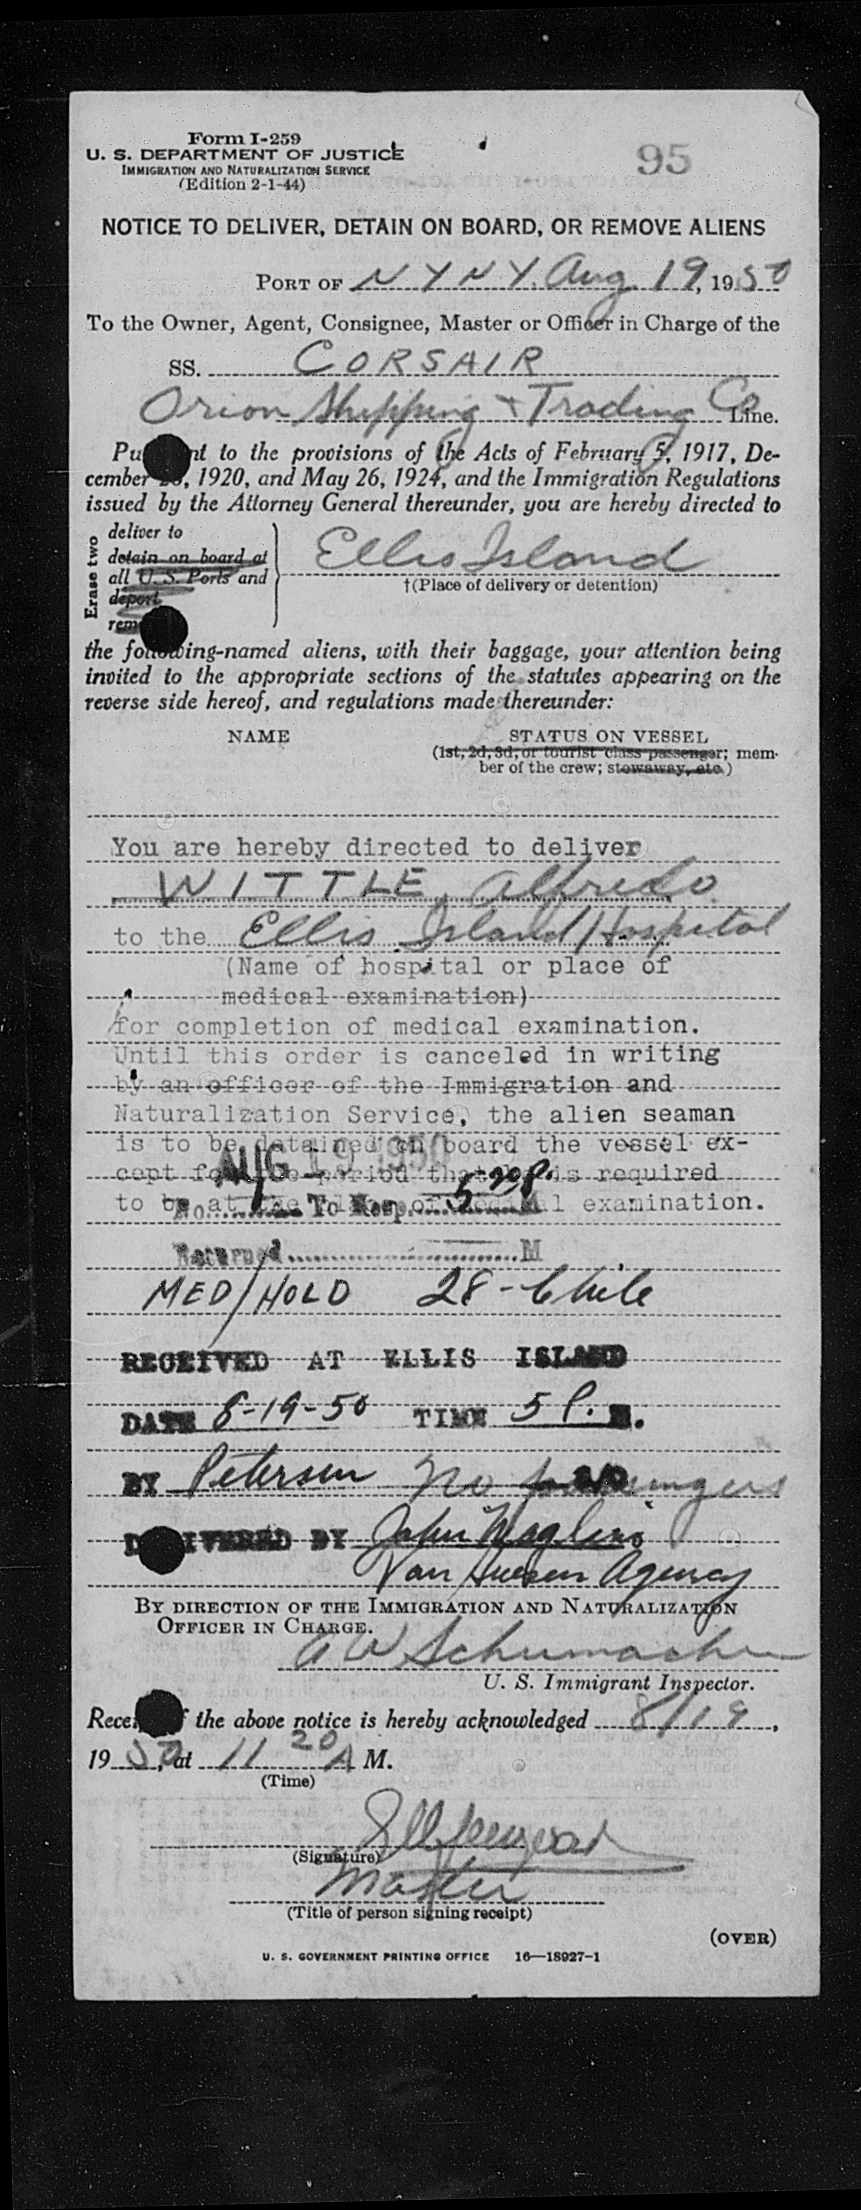 Form I-259
U. S. DEPARTMENT OF JUSTICE
IMMIGRATION AND NATURALIZATION SERVICE
(Edition 2-1-44)
95
NOTICE TO DELIVER, DETAIN ON BOARD, OR REMOVE ALIENS
PORT OF N Y N Y, Aug. 19, 1950
To the Owner, Agent, Consignee, Master or Officer in Charge of the
SS. CORSAIR
Orion Shipping & Trading Co Line.
Pu nt to the provisions of the Acts of February 5, 1917, De-
cember , 1920, and May 26, 1924, and the Immigration Regulations
issued by the Attorney General thereunder, you are hereby directed to
Erase two
deliver to
detain on board at
all U. S. Ports and
deport
rem
Ellis Island
†(Place of delivery or detention)
the following-named aliens, with their baggage, your attention being
invited to the appropriate sections of the statutes appearing on the
reverse side hereof, and regulations made thereunder:
NAME STATUS ON VESSEL
(1st, 2d, 3d, or tourist class passenger; mem-
ber of the crew; stowaway, etc.)
You are hereby directed to deliver
WITTLE, Alfredo
to the Ellis Island Hospital
(Name of hospital or place of
medical examination)
for completion of medical examination.
Until this order is canceled in writing
by an officer of the Immigration and
Naturalization Service, the alien seaman
is to be detained on board the vessel ex-
cept for the period that he is required
to be at the place of medical examination.
AUG 19 1950
No. To Hosp. 5 20 P. M
Returned M
MED/HOLD 28 - Chile
RECEIVED AT ELLIS ISLAND
DATE 8-19-50 TIME 5 P. M.
BY Petersen No
DELIVERED BY John
Van Agency
BY DIRECTION OF THE IMMIGRATION AND NATURALIZATION
OFFICER IN CHARGE.
A W Schumacher
U. S. Immigrant Inspector.
Recei f the above notice is hereby acknowledged 8/19,
1950, at 11 20 A M.
(Time)
(Signature)
Master
(Title of person signing receipt)
(OVER)
U. S. GOVERNMENT PRINTING OFFICE 16—18927-1